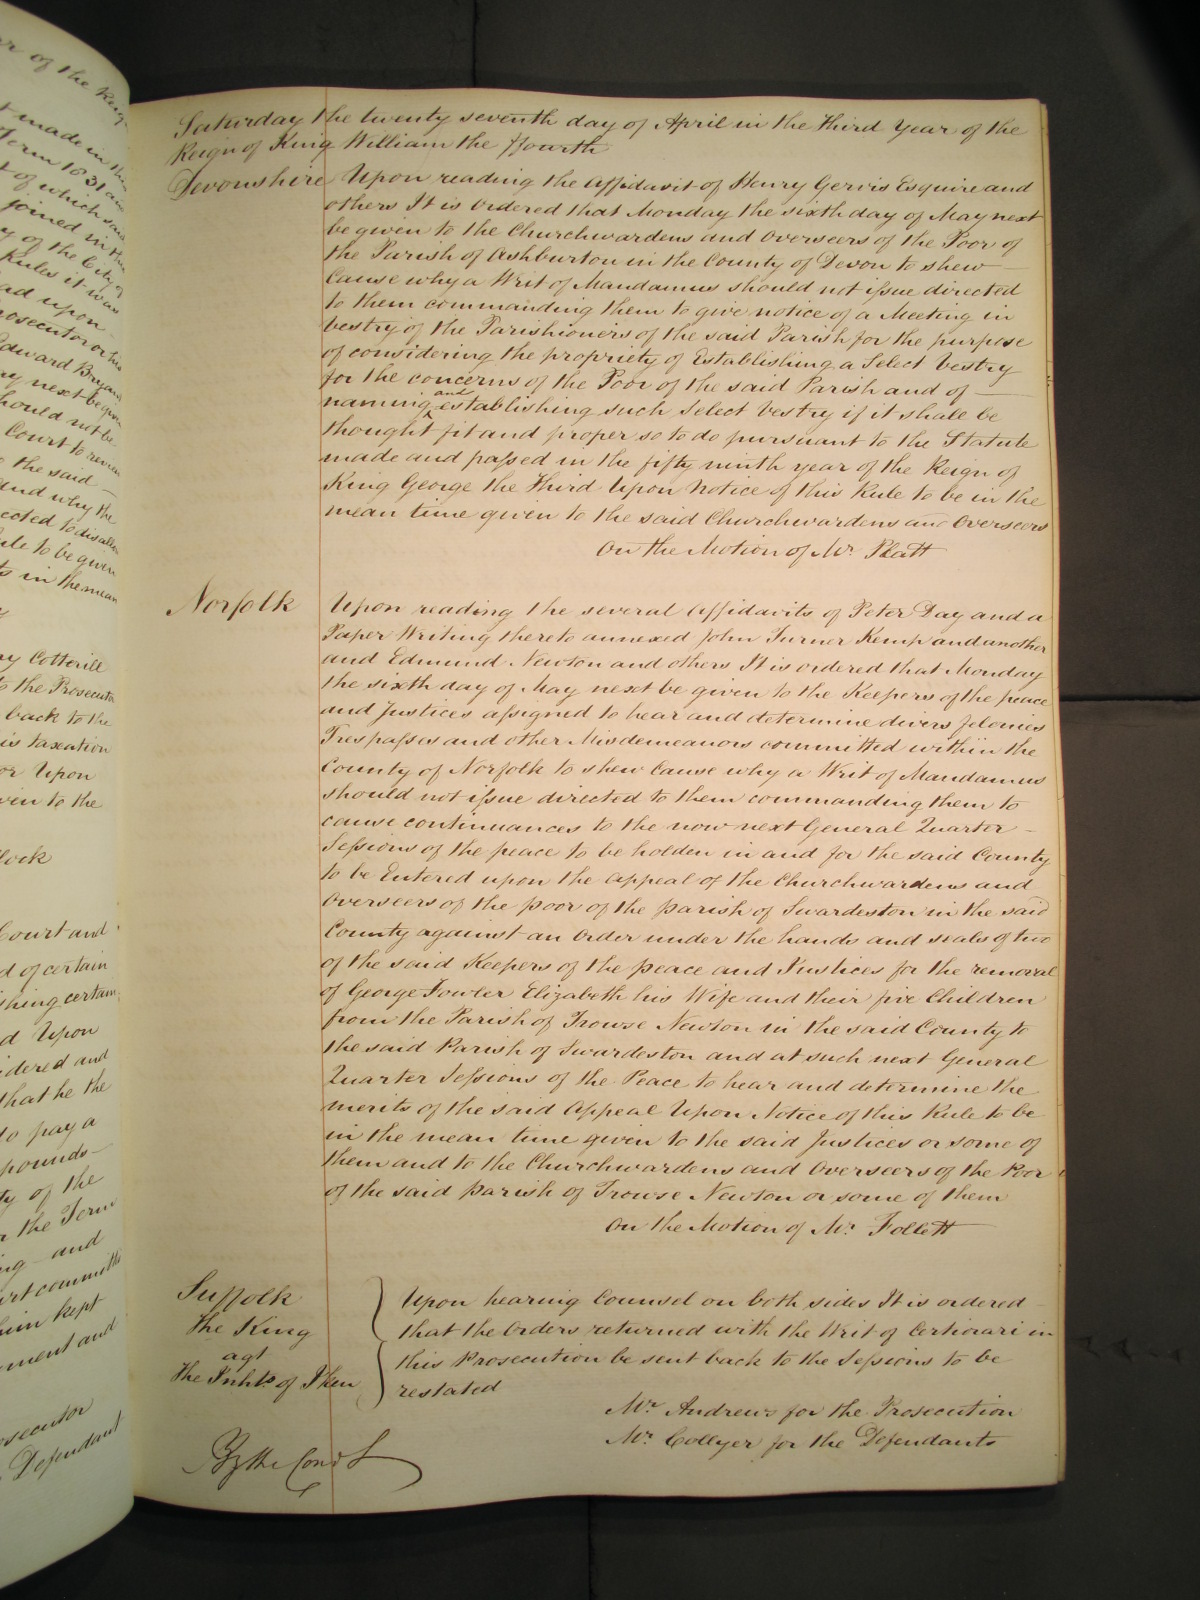 er of the Reign
t made in this
Term 1831 and
t of which said
joined in the
y of the City of
Rules it was
ad upon
rosecutor or his
Edward Bryan
ay next be given
hould not be
Court to
o the said
and why the
ected to disallow
ule to be given
ts in the mean
ry Cotterill
to the Prosecutor
back to the
is taxation
or Upon
ven to the
lock
Court and
d of certain
shing certain
d Upon
idered and
that he the
to pay a
pounds
ty of the
n the Term
ng and
urt committed
him kept
ment and
osecutor
Defendant
Saturday the twenty seventh day of April in the third Year of the
Reign of King William the Fourth
Devonshire Upon reading the affidavit of Henry Gervis Esquire and
others It is ordered that Monday the sixth day of May next
be given to the Churchwardens and Overseers of the Poor of
the Parish of Ashburton in the County of Devon to shew
Cause why a Writ of Mandamus should not issue directed
to them commanding them to give notice of a Meeting in
vestry of the Parishioners of the said Parish for the purpose
of considering the propriety of Establishing a Select Vestry
for the concerns of the Poor of the said Parish and of
naming and establishing such Select Vestry if it shall be
thought fit and proper so to do pursuant to the Statute
made and passed in the fifty ninth year of the Reign of
King George the Third Upon Notice of this Rule to be in the
mean time given to the said Churchwardens and Overseers
On the Motion of Mr. Platt
Norfolk Upon reading the several affidavits of Peter Day and a
Paper Writing thereto annexed John Turner Kemp and another
and Edmund Newton and others It is ordered that Monday
the sixth day of May next be given to the Keepers of the peace
and Justices assigned to hear and determine divers felonies
Trespasses and other Misdemeanors committed within the
County of Norfolk to shew Cause why a Writ of Mandamus
should not issue directed to them commanding them to
cause continuances to the now next General Quarter
Sessions of the peace to be holden in and for the said County
to be Entered upon the appeal of the Churchwardens and
Overseers of the poor of the parish of Swardeston in the said
County against an Order under the hands and seals of two
of the said Keepers of the peace and Justices for the removal
of George Fowler Elizabeth his Wife and their five Children
from the Parish of Trowse Newton in the said County to
the said Parish of Swardeston and at such next General
Quarter Sessions of the Peace to hear and determine the
merits of the said Appeal Upon Notice of this Rule to be
in the mean time given to the said Justices or some of
them and to the Churchwardens and Overseers of the Poor
of the said parish of Trowse Newton or some of them
On the Motion of Mr. Follett
Suffolk
the King
agt
the Inhts of Iken
Upon hearing Counsel on both sides It is ordered
that the Orders returned with the Writ of Certiorari in
this Prosecution be sent back to the Sessions to be
restated
Mr. Andrews for the Prosecution
Mr. Collyer for the Defendants